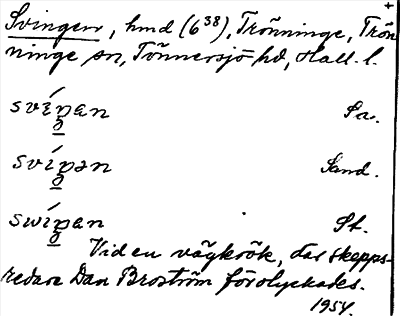 Svingen, hmd (6³⁸), Trönninge, Trön
ninge sn, Tönnersjö hd, Hall. l.
Sa.
Sand.
St.
Vid en vägkrök, där skepps-
redare Dan Broström förolyckades.
1954.